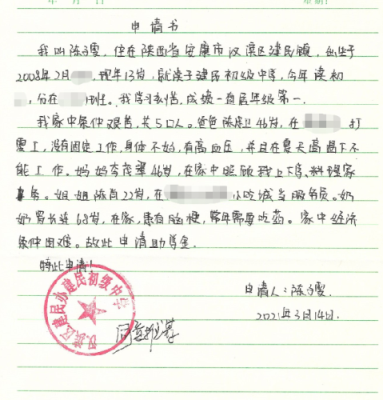 申请书
我叫陈雯，住在陕西省安康市汉滨区建民镇，出生于
2008年2月，现年13岁，就读于建民初级中学，今年读初
，分在班。我学习刻苦，成绩一直居年级第一。
我家中条件艰苦，共5口人。爸爸陈46岁，在打
零工，没有固定工作，身体不好，有高血压，并且在夏天高温下不
能工作。妈妈李46岁，在家中照顾我上下学，料理家
务。姐姐陈22岁，在小吃城当服务员。奶
奶68岁，在家，患有脑梗，常年需要吃药。家中经济
条件困难。故此申请助学金。
特此申请！
申请人：陈雯
2021年3月14日
汉滨区建民办建民初级中学
同意推荐